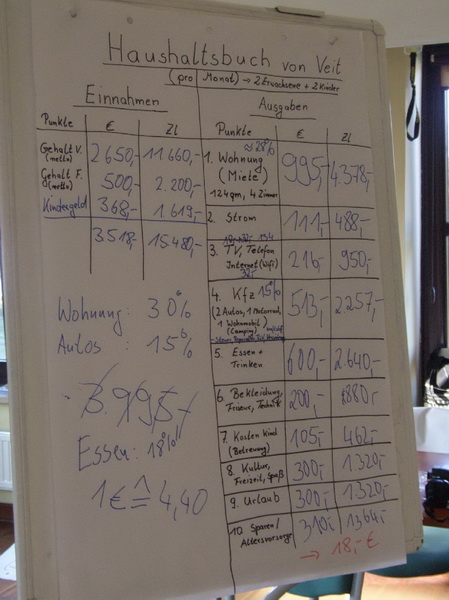 Haushaltsbuch von Veit
(pro Monat) → 2 Erwachsene + 2 Kinder
Einnahmen
Punkte € Zl
Gehalt V. (netto) 2650,- 11660,-
Gehalt F. (netto) 500,- 2.200,-
Kindergeld 368,- 1.619,-
3518,- 15480,-
Wohnung: 30%
Autos: 15%
3.995,-
Essen: 18%
1€ ≙ 4,40
Ausgaben
Punkte € Zl
≈28%
1. Wohnung 995,- 4378,-
(Miete)
124qm, 4 Zimmer
2. Strom 111,- 488,-
3. TV, Telefon 216,- 950,-
Internet (Wifi)
4. Kfz 15% 513,- 2.257,-
(2 Autos, 1 Motorrad,
1 Wohnmobil
(Camping)
5. Essen + 600,- 2.640,-
Trinken
6. Bekleidung, 200,- 880,-
Friseur, Technik
7. Kosten Kind 105,- 462,-
(Betreuung)
8. Kultur, 300,- 1320,-
Freizeit, Spaß
9. Urlaub 300,- 1320,-
10. Sparen/ 310,- 1364,-
Altersvorsorge
→ 18,- €